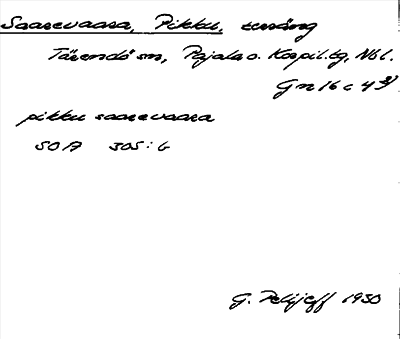 Saarevaara, Pikku, terräng
Tärendö sn, Pajala o. Korpil. tg, Nbl.
Gn 16 c 4 3)
pikku saarevaara
SOA 305:6
G. Pellijeff 1930